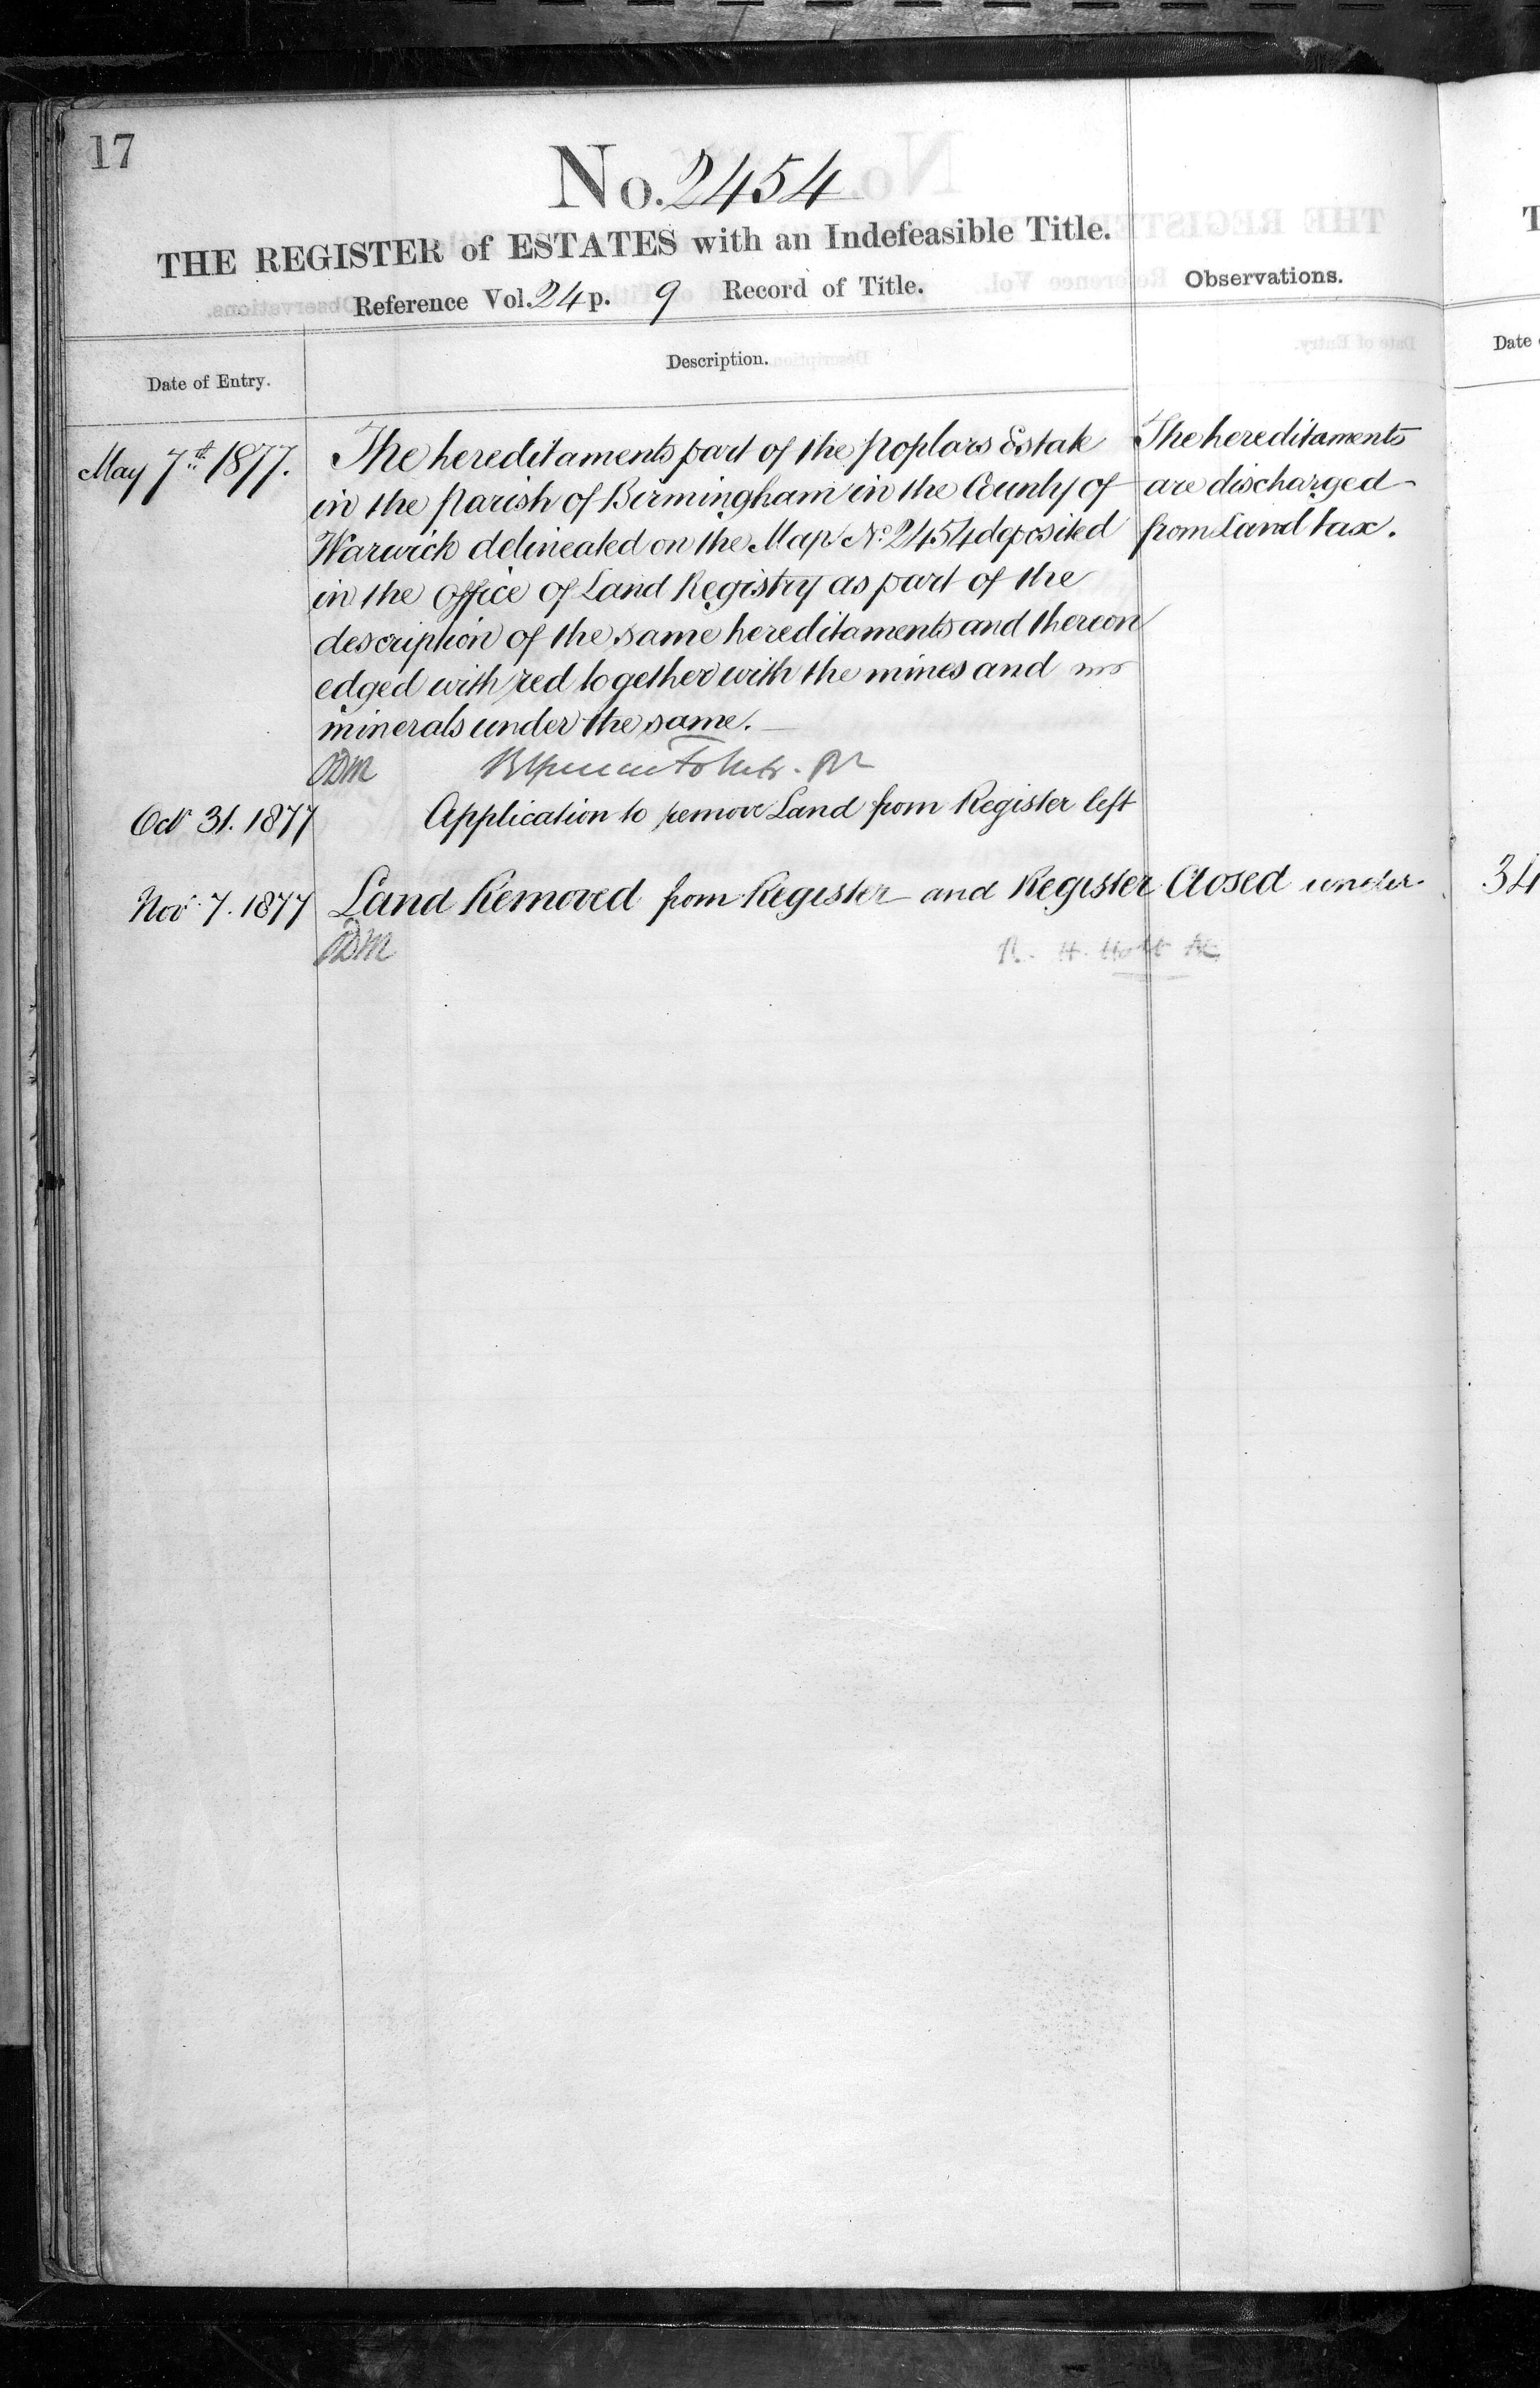 17
No. 2454
THE REGISTER of ESTATES with an Indefeasible Title.
Reference Vol. 24 p. 9 Record of Title.
Observations.
Date of Entry.
Description.
May 7th 1877.
The hereditaments part of the Poplars Estate
in the parish of Birmingham in the County of
Warwick delineated on the Map No 2454 deposited
in the Office of Land Registry as part of the
description of the same hereditaments and thereon
edged with red together with the mines and
minerals under the same.
The hereditaments
are discharged
from Land tax.
Oct 31. 1877
Application to remove Land from Register left
Nov. 7. 1877
Land Removed from Register and Register Closed under
R. H. Holt
Date
34